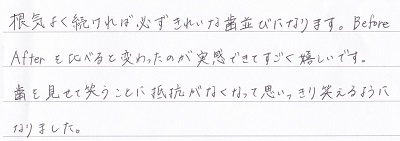 根気よく続ければ必ずきれいな歯並びになります。Before
Afterを比べると変わったのが実感できてすごく嬉しいです。
歯を見せて笑うことに抵抗がなくなって思いっきり笑えるように
なりました。